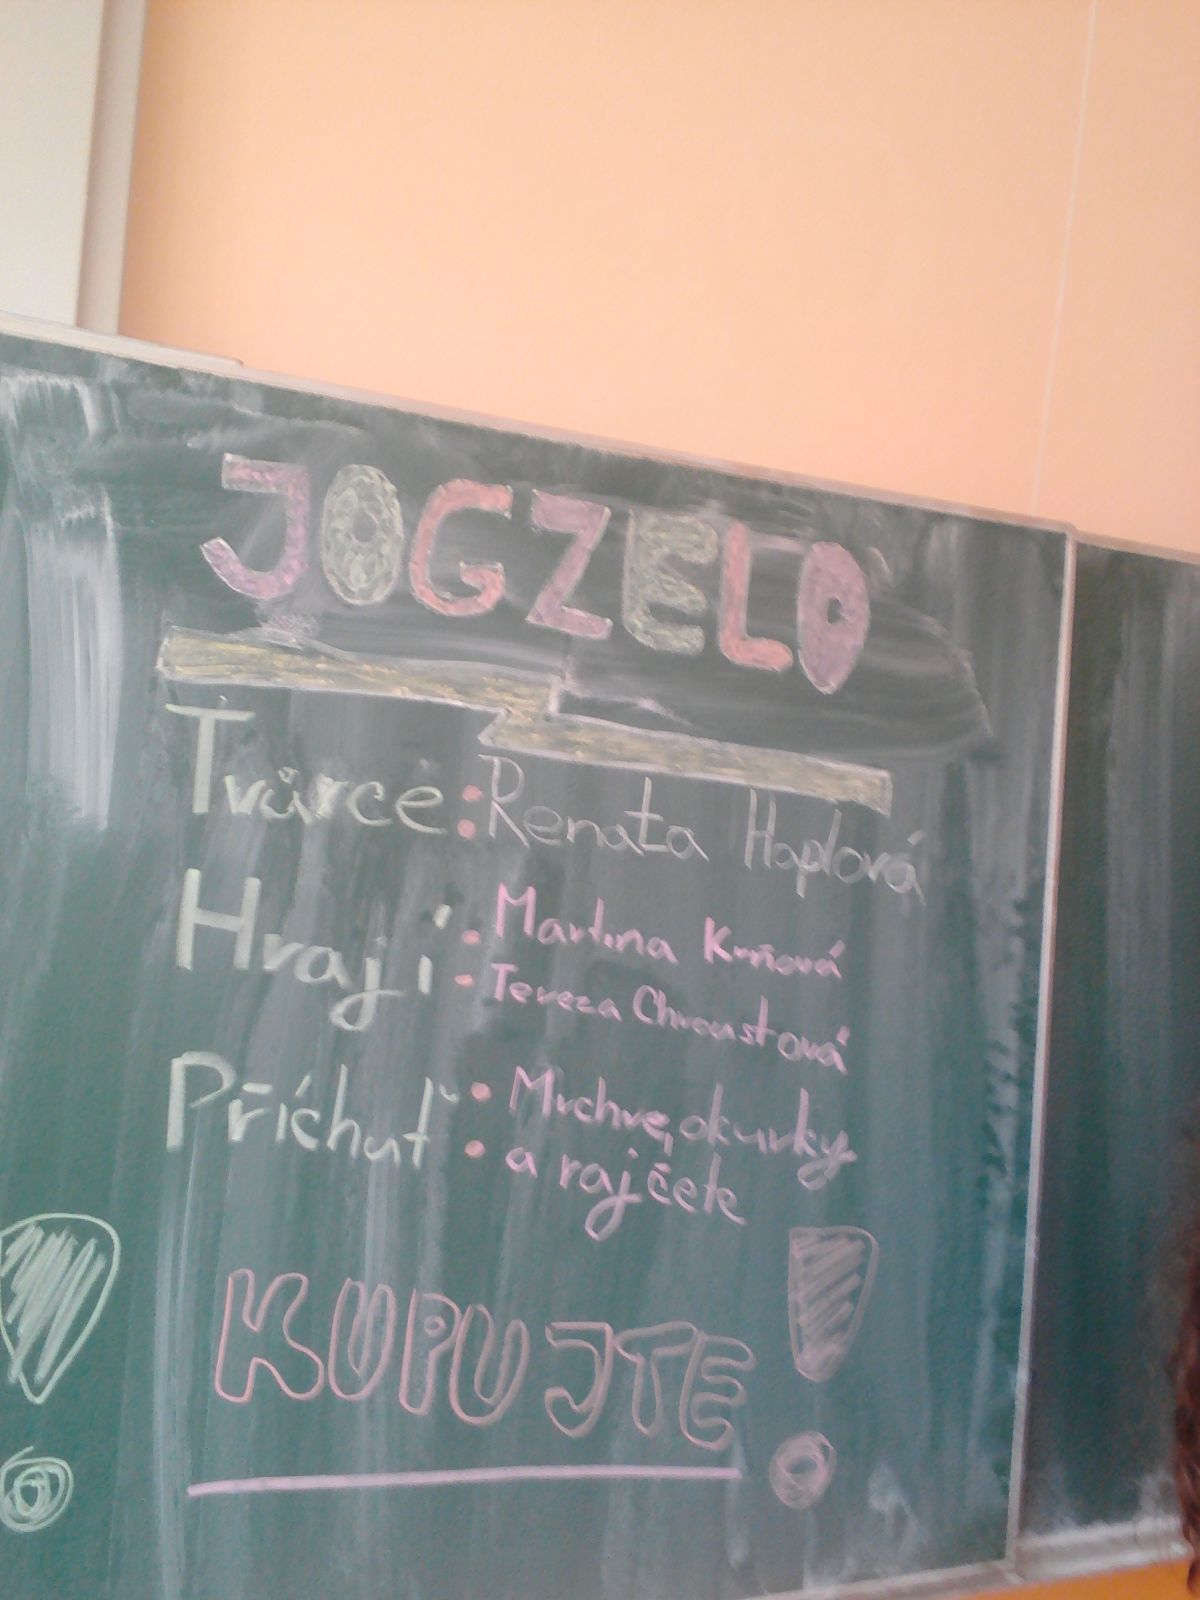 JOGZELO
Tvůrce: Renata Haplová
Hrají: Martina Krňová
Tereza Chroustová
Příchuť: Mrchve, okurky
a rajčete
! KUPUJTE !